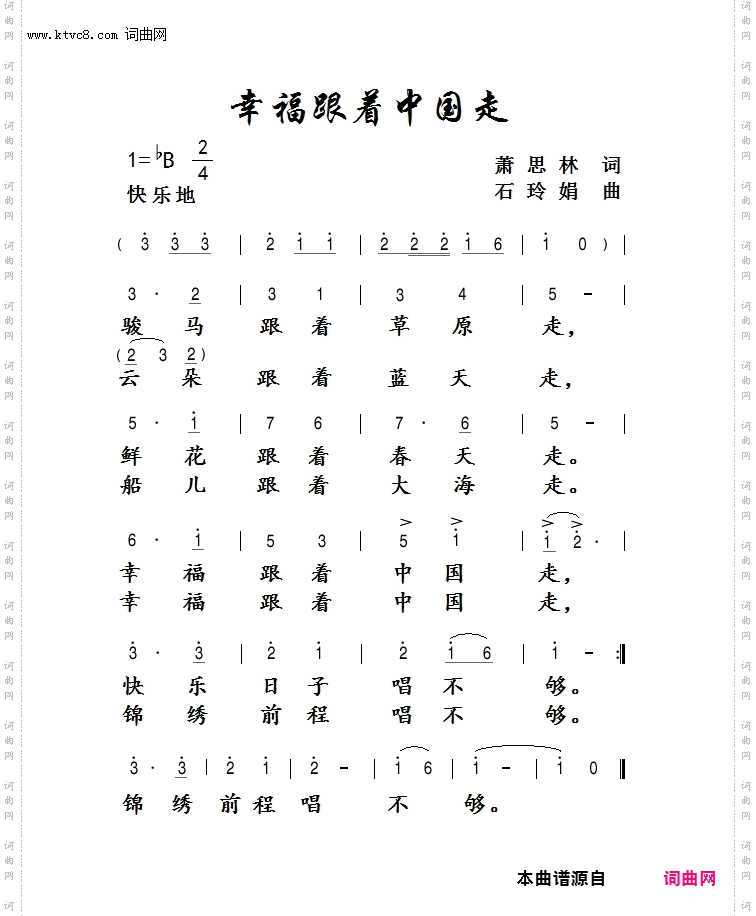 www.ktvc8.com 词曲网
幸福跟着中国走
1=♭B 2/4
萧思林 词
快乐地
石玲娟 曲
( 3̇ 3̇ 3̇ | 2̇ 1̇ 1̇ | 2̇ 2̇ 2̇ 1̇ 6 | 1̇ 0 ) |
3 · 2 | 3 1 | 3 4 | 5 - |
骏马跟着草原走，
( 2 3 2 )
云朵跟着蓝天走，
5 · 1̇ | 7 6 | 7 · 6 | 5 - |
鲜花跟着春天走。
船儿跟着大海走。
6 · 1̇ | 5 3 | 5 1̇ | 1̇ 2̇ · |
幸福跟着中国走，
幸福跟着中国走，
3̇ · 3̇ | 2̇ 1̇ | 2̇ 1̇ 6 | 1̇ - :‖
快乐日子唱不够。
锦绣前程唱不够。
3̇ · 3̇ | 2̇ 1̇ | 2̇ - | 1̇ 6 | 1̇ - | 1̇ 0 ‖
锦绣前程唱不够。
本曲谱源自 词曲网